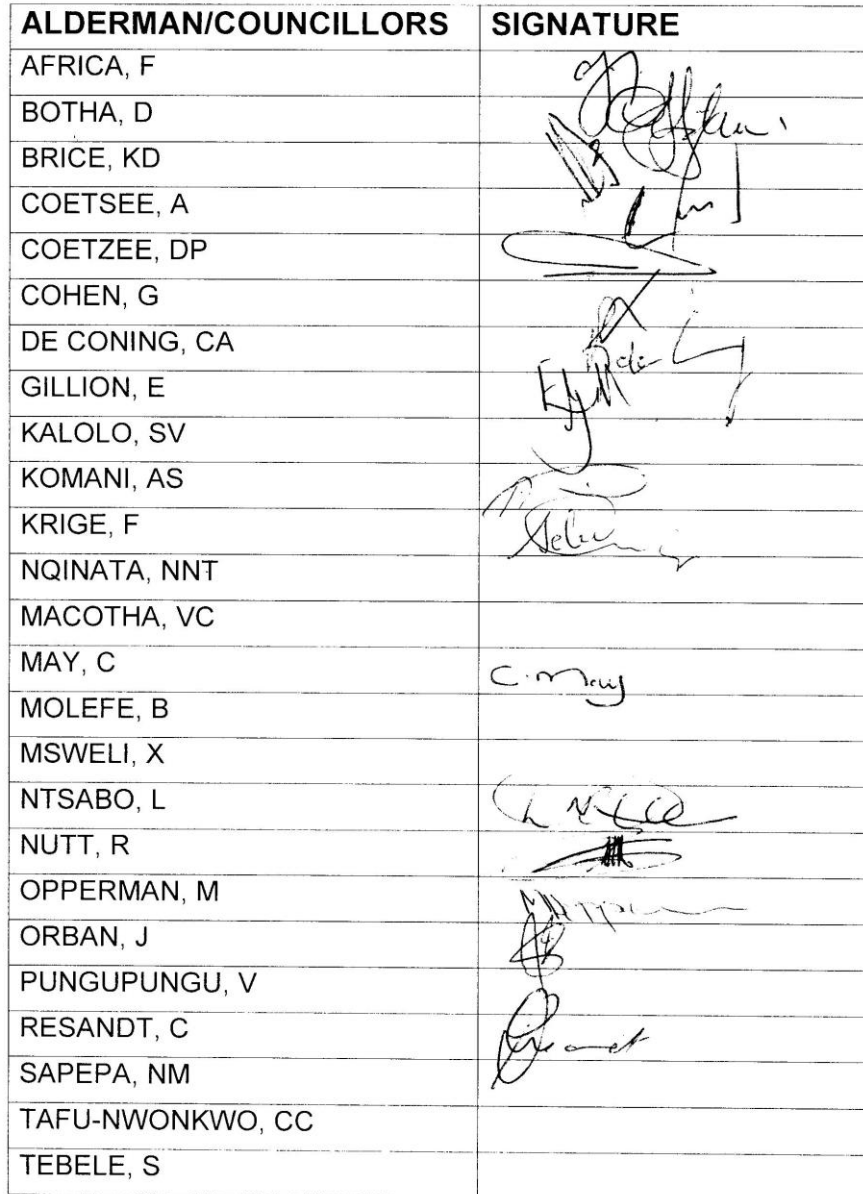 ALDERMAN/COUNCILLORS SIGNATURE
AFRICA, F
BOTHA, D
BRICE, KD
COETSEE, A
COETZEE, DP
COHEN, G
DE CONING, CA
GILLION, E
KALOLO, SV
KOMANI, AS
KRIGE, F
NQINATA, NNT
MACOTHA, VC
MAY, C C. May
MOLEFE, B
MSWELI, X
NTSABO, L
NUTT, R
OPPERMAN, M
ORBAN, J
PUNGUPUNGU, V
RESANDT, C
SAPEPA, NM
TAFU-NWONKWO, CC
TEBELE, S